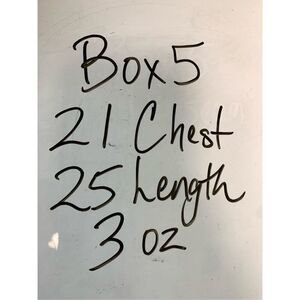 Box 5
21 Chest
25 Length
3 oz